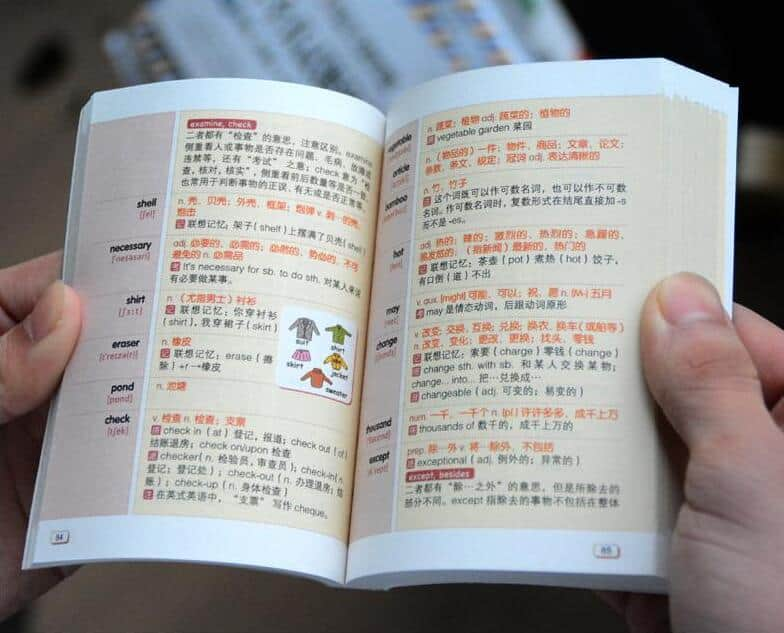 examine, check
二者都有“检查”的意思，注意区别。examine
侧重看人或事物是否存在问题、毛病、故障或
违禁等，还有“考试”之意；check 意为“检
查，核对，核实”，侧重看前后数量等是否一致，
也常用于判断事物的正误、有无或是否正常等。
shell
[ʃel]
n. 壳、贝壳；外壳、框架；炮弹 v. 剥…的壳、
炮击
记 联想记忆：架子（shelf）上摆满了贝壳（shell）
necessary
[ˈnesəsəri]
adj. 必要的、必需的；必然的、势必的、不可
避免的 n. 必需品
考 It's necessary for sb. to do sth. 对某人来说
有必要做某事。
shirt
[ʃɜːt]
n. （尤指男士）衬衫
记 联想记忆：你穿衬衫
（shirt），我穿裙子（skirt）
suit
shirt
skirt
jacket
sweater
eraser
[ɪˈreɪzə(r)]
n. 橡皮
记 联想记忆：erase（擦
除）+r→橡皮
pond
[pɒnd]
n. 池塘
check
[tʃek]
v. 检查 n. 检查；支票
check in（at）登记，报道；check out（of）
结账退房；check on/upon 检查
checker（n. 检验员，审查员）；check-in（n.
登记；登记处）；check-out（n. 办理退房；结
账）；check-up（n. 身体检查）
注 在英式英语中，“支票”写作 cheque。
84
vegetable
n. 蔬菜；植物 adj. 蔬菜的；植物的
vegetable garden 菜园
article
n. （物品的）一件；物件，商品；文章、论文；
条款、条文、规定；冠词 adj. 表达清晰的
bamboo
n. 竹，竹子
这个词既可以作可数名词，也可以作不可数
名词。作可数名词时，复数形式在结尾直接加 -s
而不是 -es。
hot
adj. 热的；辣的；激烈的、热烈的；急躁的、
易发怒的；（指新闻）最新的、热门的
记 联想记忆：茶壶（pot）煮热（hot）饺子，
有口倒（道）不出
may
v. aux. [might] 可能、可以；祝、愿 n. [M-] 五月
考 may 是情态动词，后跟动词原形
change
v. 改变；交换、互换；兑换；换衣、换车（或船等）
n. 改变、变化；更改、更换；找头、零钱
记 联想记忆：索要（charge）零钱（change）
change sth. with sb. 和某人交换某物；
change... into... 把…兑换成…
changeable（adj. 可变的；易变的）
thousand
num. 一千，一千个 n. [pl.] 许许多多、成千上万
thousands of 数千的，成千上万的
except
prep. 除…外 v. 将…除外，不包括
exceptional（adj. 例外的；异常的）
except, besides
二者都有“除…之外”的意思，但是所除去的
部分不同。except 指除去的事物不包括在整体
85